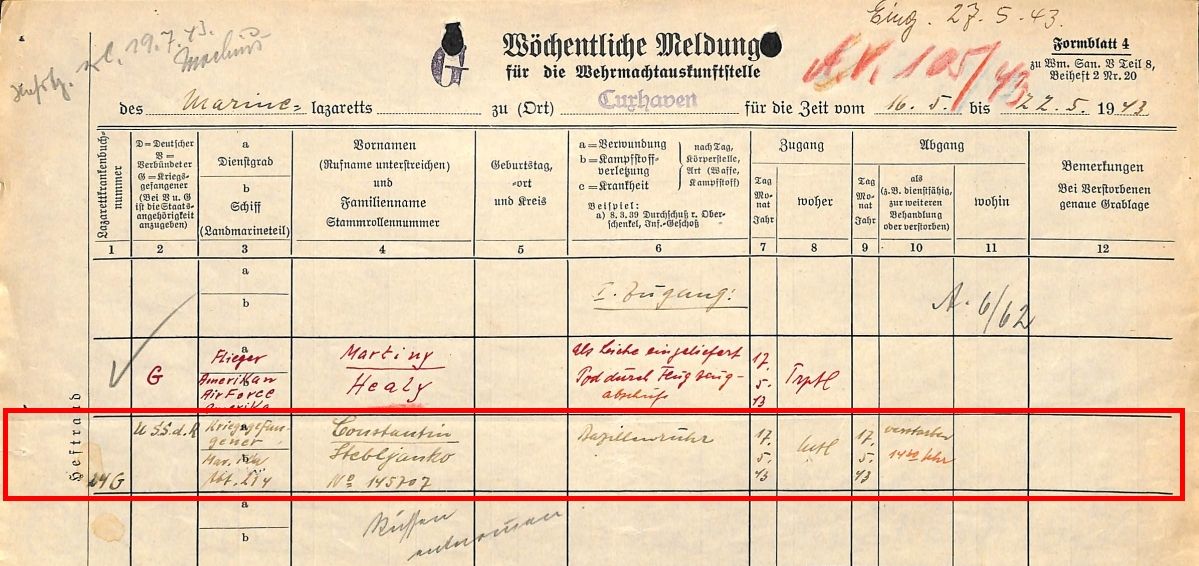 Eing. 27.5.43.
19.7.43.
G
Wöchentliche Meldung
für die Wehrmachtauskunftstelle
A.V. 105/43
Formblatt 4
zu Wm. San. V Teil 8,
Beiheft 2 Nr. 20
des Marine= lazaretts zu (Ort) Cuxhaven für die Zeit vom 16.5. bis 22.5. 1943
Lazarettkrankenbuch-
nummer
D = Deutscher
V = Verbündeter
G = Kriegs-
gefangener
(Bei V u. G
ist die Staats-
angehörigkeit
anzugeben)
a
Dienstgrad
b
Schiff
(Landmarineteil)
Vornamen
(Rufname unterstreichen)
und
Familienname
Stammrollennummer
Geburtstag,
-ort
und Kreis
a = Verwundung
b = Kampfstoff-
verletzung
c = Krankheit
nach Tag,
Körperstelle,
Art (Waffe,
Kampfstoff)
Beispiel:
a) 8.3.39 Durchschuß r. Ober-
schenkel, Inf.-Geschoß
Zugang
Tag
Mo-
nat
Jahr
woher
Abgang
Tag
Mo-
nat
Jahr
als
(z.B. dienstfähig,
zur weiteren
Behandlung
oder verstorben)
wohin
Bemerkungen
Bei Verstorbenen
genaue Grablage
1 2 3 4 5 6 7 8 9 10 11 12
a
b
I. Zugang:
A. 6/62
G
a
b
Flieger
Amerikan
Air Force
Amerika
Martiny
Healy
als Leiche eingeliefert
Tod durch Flugzeug-
abschuß
17.
5.
43
Heftrand
24 G
U.S.S.d.R
a
b
Kriegsgefan-
gener
Constantin
Stebljanko
No 145707
Bazillenruhr
17.
5.
43
17.
5.
43
verstorben
14 Uhr
a
b
Russen